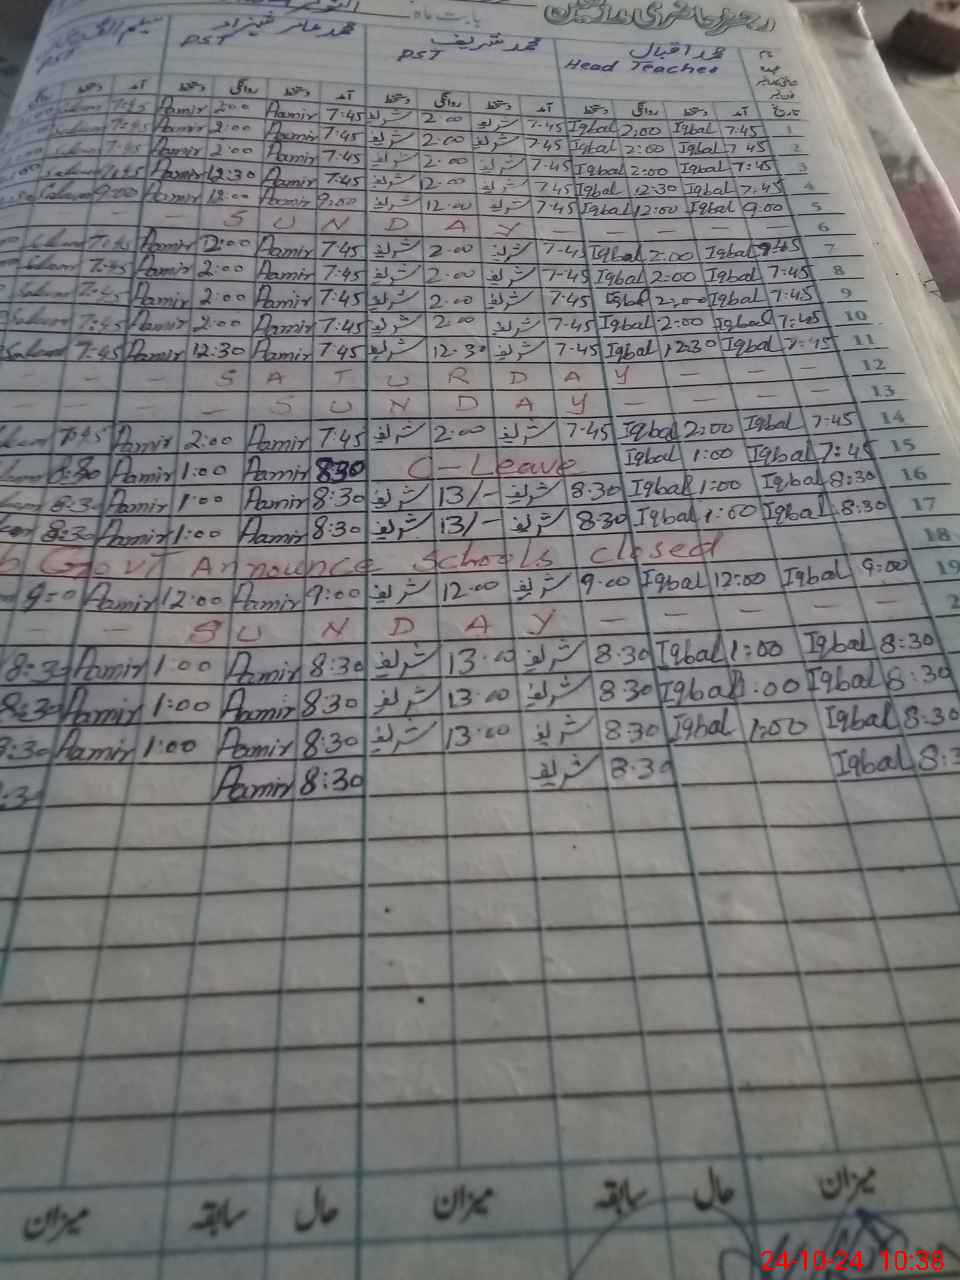 رجسٹر حاضری مدرسین
بابت ماہ
محمد اقبال محمد شریف محمد عامر شہزاد
Head Teacher PST PST PST
تاریخ آمد دستخط روانگی دستخط آمد دستخط روانگی دستخط آمد دستخط روانگی دستخط آمد دستخط
7:45 Aamir 2:00 Aamir 7:45 شریف 2.00 شریف 7.45 Iqbal 2:00 Iqbal 7:45 1
7:45 Aamir 2:00 Aamir 7:45 شریف 2.00 شریف 7.45 Iqbal 2:00 Iqbal 7:45 2
7:45 Aamir 2:00 Aamir 7:45 شریف 2.00 شریف 7.45 Iqbal 2:00 Iqbal 7:45 3
Salam 7:45 Aamir 12:30 Aamir 7:45 شریف 12.00 شریف 7.45 Iqbal 12:30 Iqbal 7:45 4
Salam 9:00 Aamir 12:00 Aamir 9:00 شریف 12.00 شریف 7.45 Iqbal 12:00 Iqbal 9:00 5
— — — S U N D A Y — — — — 6
Salam 7:45 Aamir 12:00 Aamir 7:45 شریف 2.00 شریف 7-45 Iqbal 2:00 Iqbal 7:45 7
Salam 7:45 Aamir 2:00 Aamir 7:45 شریف 2.00 شریف 7-45 Iqbal 2:00 Iqbal 7:45 8
Salam 7:45 Aamir 2:00 Aamir 7:45 شریف 2.00 شریف 7.45 Iqbal 2:00 Iqbal 7:45 9
Salam 7:45 Aamir 2:00 Aamir 7:45 شریف 2.00 شریف 7.45 Iqbal 2:00 Iqbal 7:45 10
Salam 7:45 Aamir 12:30 Aamir 7:45 شریف 12.30 شریف 7-45 Iqbal 12:30 Iqbal 7:45 11
— — — S A T U R D A Y — — — 12
— — — — S U N D A Y — — — — 13
7:45 Aamir 2:00 Aamir 7:45 شریف 2.00 شریف 7.45 Iqbal 2:00 Iqbal 7:45 14
8:30 Aamir 1:00 Aamir 8:30 C-Leave Iqbal 1:00 Iqbal 7:45 15
8:30 Aamir 1:00 Aamir 8:30 شریف 13/- شریف 8.30 Iqbal 1:00 Iqbal 8:30 16
8:30 Aamir 1:00 Aamir 8:30 شریف 13/- شریف 8.30 Iqbal 1:00 Iqbal 8:30 17
Govt Announce Schools closed 18
9:00 Aamir 12:00 Aamir 9:00 شریف 12.00 شریف 9.00 Iqbal 12:00 Iqbal 9:00 19
— — S U N D A Y — — — — 2
8:30 Aamir 1:00 Aamir 8:30 شریف 13.00 شریف 8.30 Iqbal 1:00 Iqbal 8:30
8:30 Aamir 1:00 Aamir 8:30 شریف 13.00 شریف 8.30 Iqbal 1:00 Iqbal 8:30
8:30 Aamir 1:00 Aamir 8:30 شریف 13.00 شریف 8.30 Iqbal 1:00 Iqbal 8:30
:30 Aamir 8:30 شریف 8.30 Iqbal 8:3
میزان حال سابقہ میزان حال سابقہ میزان
24-10-24 10:38